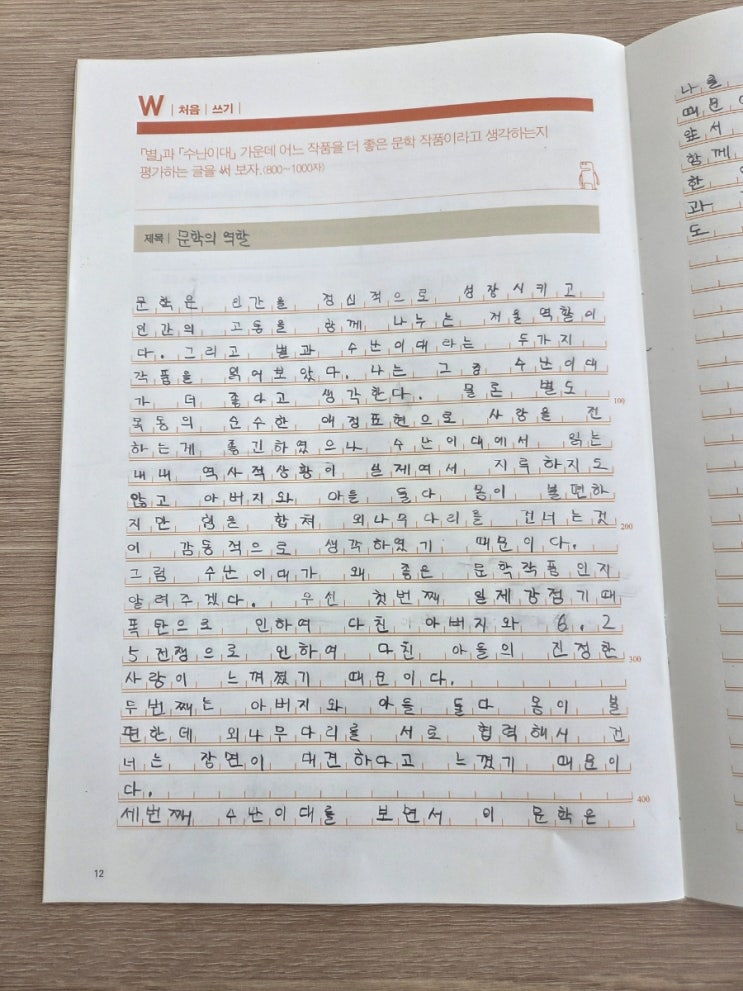 W | 처음 | 쓰기 |
「별」과 「수난이대」 가운데 어느 작품을 더 좋은 문학 작품이라고 생각하는지
평가하는 글을 써 보자. (800~1000자)
제목 | 문학의 역할
문학은 인간을 정신적으로 성장시키고
인간의 고통을 함께 나누는 저울 역할이
다. 그리고 별과 수난이대라는 두가지
작품을 읽어보았다. 나는 그 중 수난이대
가 더 좋다고 생각한다. 물론 별도
100
목동의 순수한 애정표현으로 사랑을 전
하는게 좋긴하였으나 수난이대에서 읽는
내내 역사적상황이 실제여서 지루하지도
않고 아버지와 아들 둘다 몸이 불편하
지만 힘을 합쳐 외나무다리를 건너는것
200
이 감동적으로 생각하였기 때문이다.
그럼 수난이대가 왜 좋은 문학작품인지
알려주겠다. 우선 첫번째 일제강점기때
폭탄으로 인하여 다친 아버지와 6.2
5전쟁으로 인하여 다친 아들의 진정한
300
사랑이 느껴졌기 때문이다.
두번째는 아버지와 아들 둘다 몸이 불
편한데 외나무다리를 서로 협력해서 건
너는 장면이 대견하다고 느꼈기 때문이
다.
400
세번째 수난이대를 보면서 이 문학은
12
나를
때문
앞서
함께
한
과
도